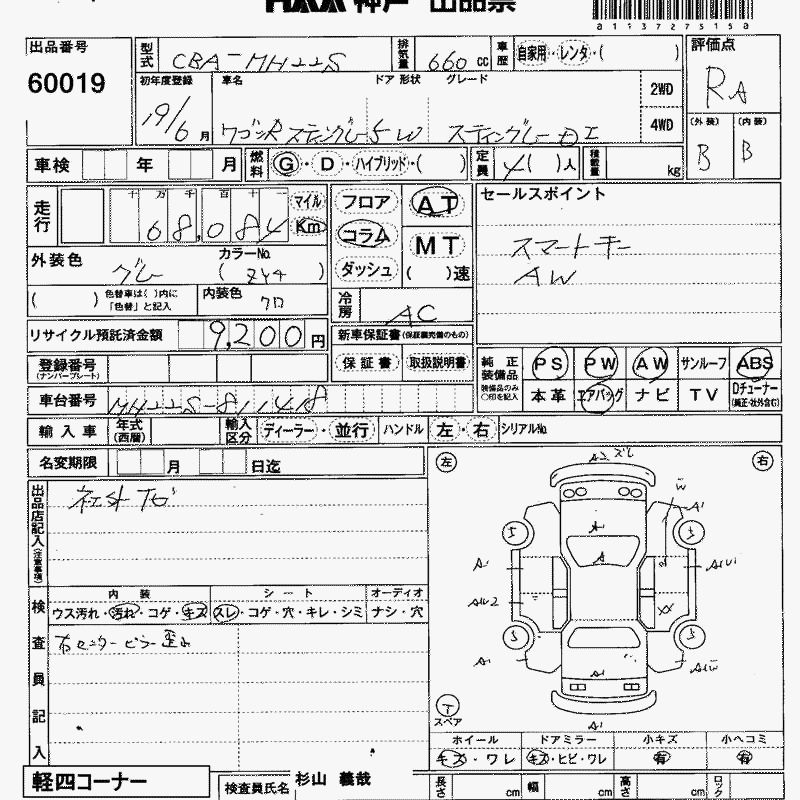 HAA 神戸 出品票
a1372751 5a
出品番号
60019
型式 CBA-MH22S
排気量 660 cc
車歴 自家用・レンタ・( )
評価点
RA
初年度登録 19/6月
車名 ワゴンR スティングレー 5W
ドア 形状 グレード
スティングレー DI
2WD
4WD
(外装) B
(内装) B
車検 年 月
燃料 G・D・ハイブリッド・( )
定員 4( )人
積載量 kg
走行
十 万 千 百 十 一
68,084
マイル
Km
フロア
コラム
ダッシュ
AT
MT
( )速
セールスポイント
スマートキー
AW
外装色 グレー
カラーNo. (ZY4)
( ) 色替車は( )内に「色替」と記入
内装色 クロ
冷房 AC
リサイクル預託済金額 9,200円
新車保証書(保証書完備のもの)
保証書 取扱説明書
登録番号
(ナンバープレート)
純正装備品 PS PW AW サンルーフ ABS
装備品のみ○印を記入 本革 エアバッグ ナビ TV Dチューナー
(純正・社外含む)
車台番号 MH22S-811418
輸入車 年式(西暦) 輸入区分 ディーラー・並行 ハンドル 左・右 シリアルNo.
名変期限 月 日迄
出品店記入(注意事項)
社外ナビ
検査員記入
内装 シート オーディオ
ウス汚れ・汚れ・コゲ・キズ スレ・コゲ・穴・キレ・シミ ナシ・穴
右センターピラー歪み
左 右
A2 ズレ
W
A1
A1
A
A1
AWU1
AW2
XX
5
5
5
5
A1
A1
A1
T
スペア
ホイール ドアミラー 小キズ 小ヘコミ
キズ・ワレ キズ・ヒビ・ワレ 有 有
軽四コーナー
検査員氏名 杉山 義哉
長さ cm 幅 cm 高さ cm ロック